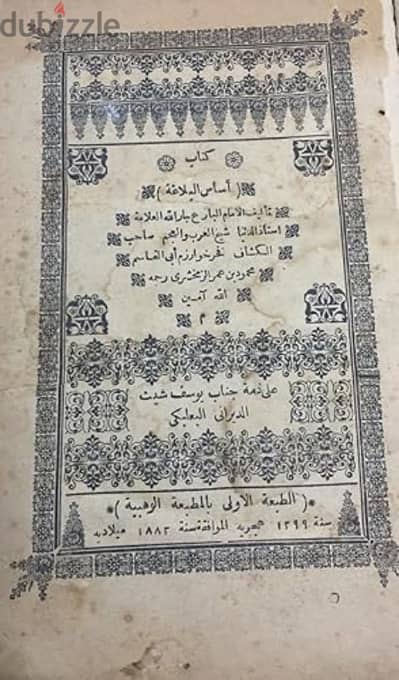 dubizzle
كتاب
( أساس البلاغة )
تأليف الامام البارع جار الله العلامة
استاذ الدنيا شيخ العرب والعجم صاحب
الكشاف فخر خوارزم أبى القاسم
محمود بن عمر الزمخشرى رحمه
الله آمين
م
على ذمة جناب يوسف شيت
الديرانى البعلبكى
( الطبعة الاولى بالمطبعة الوهبية )
سنة ١٢٩٩ هجريه الموافقة سنة ١٨٨٢ ميلاديه